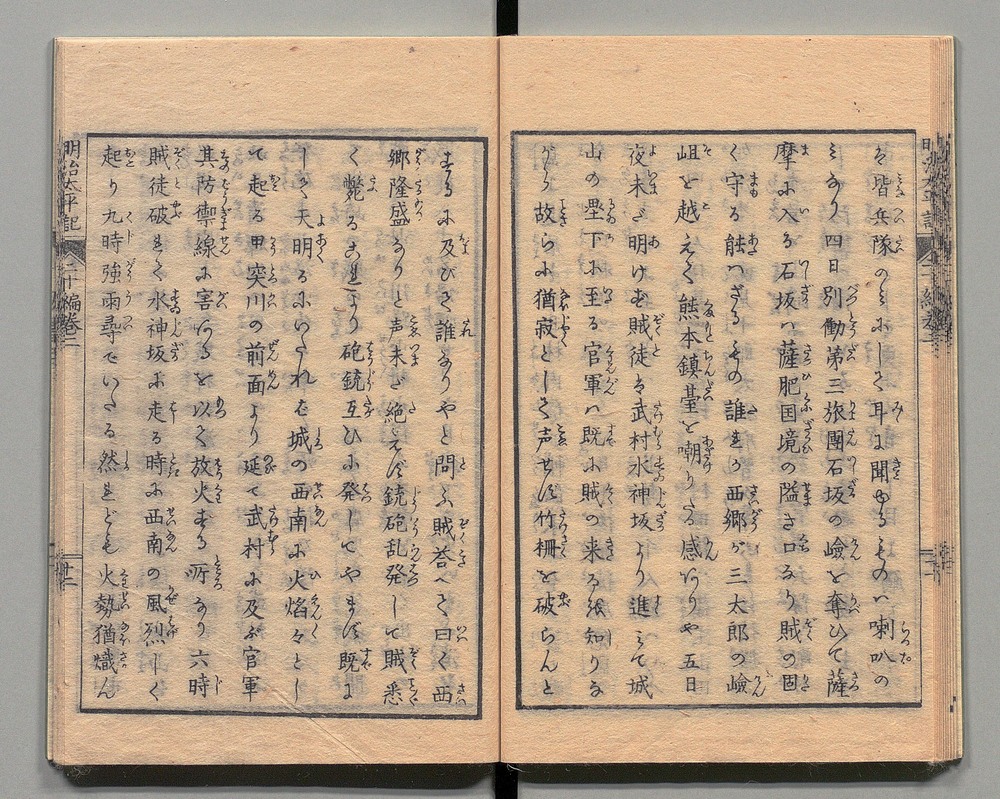 は皆兵隊のミにして耳に聞ゆるものハ喇叭の
ミなり四日別働第三旅團石坂の嶮を奪ひて薩
摩に入る石坂ハ薩肥国境の隘き口なり賊の固
く守る能ハざるもの誰れか西郷が三太郎の嶮
岨を越えて熊本鎮䑓を嘲りたる感ありや五日
夜未だ明けず賊徒は武村水神坂より進ミて城
山の壘下に至る官軍ハ既に賊の来るを知りな
がら故らに猶寂として声せず竹柵を破らんと
するに及びて誰なりやと問ふ賊荅へて曰く西
郷隆盛なりと声未だ絶えず銃砲乱発して賊悉
く斃るこれより砲銃互ひに発してやまず既に
して天明るにいたれば城の西南に火焰々とし
て起る甲突川の前面より延て武村に及ぶ官軍
其防禦線に害あるを以て放火する所なり六時
賊徒破れて水神坂に走る時に西南の風烈しく
起り九時強雨尋でいたる然れども火勢猶熾ん
明治太平記 二十編巻二 十二